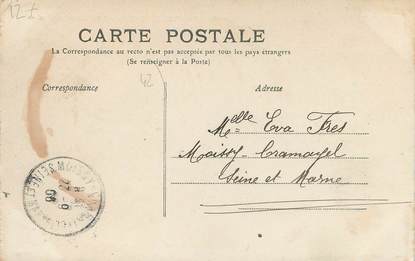 12 f
CARTE POSTALE
La Correspondance au recto n'est pas acceptée par tous les pays étrangers
(Se renseigner à la Poste)
42
Correspondance
Adresse
Melle Eva Fres
Moissy-Cramayel
Seine et Marne